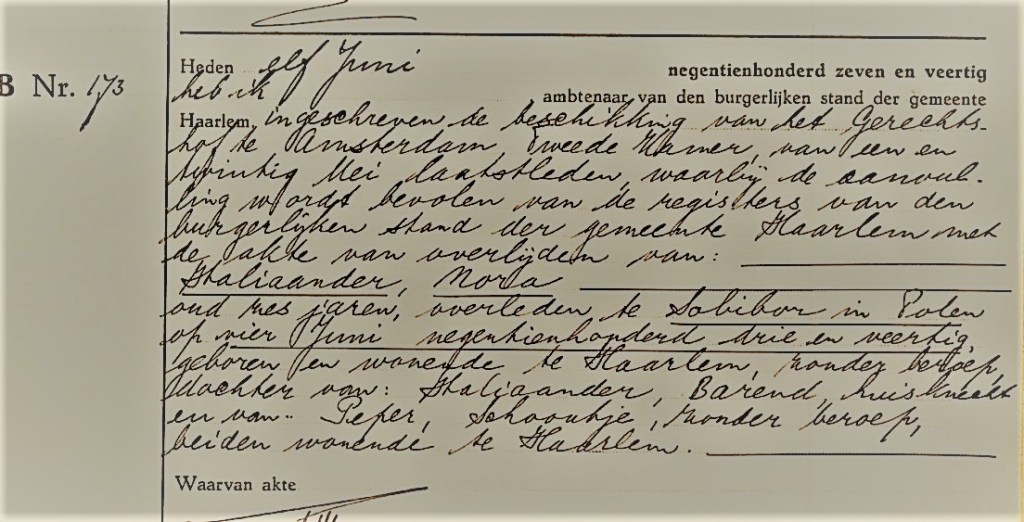 B Nr. 173
Heden elf Juni negentienhonderd zeven en veertig
heb ik ambtenaar van den burgerlijken stand der gemeente
Haarlem, ingeschreven de beschikking van het Gerechts-
hof te Amsterdam, Tweede Kamer, van een en
twintig Mei laatstleden, waarbij de aanvul-
ling wordt bevolen van de registers van den
burgerlijken stand der gemeente Haarlem met
de akte van overlijden van:
Italiaander, Nora
oud zes jaren, overleden te Sobibor in Polen
op vier Juni negentienhonderd drie en veertig,
geboren en wonende te Haarlem, zonder beroep,
dochter van: Italiaander, Barend, huisknecht
en van: Peper, Schoontje, zonder beroep,
beiden wonende te Haarlem.
Waarvan akte